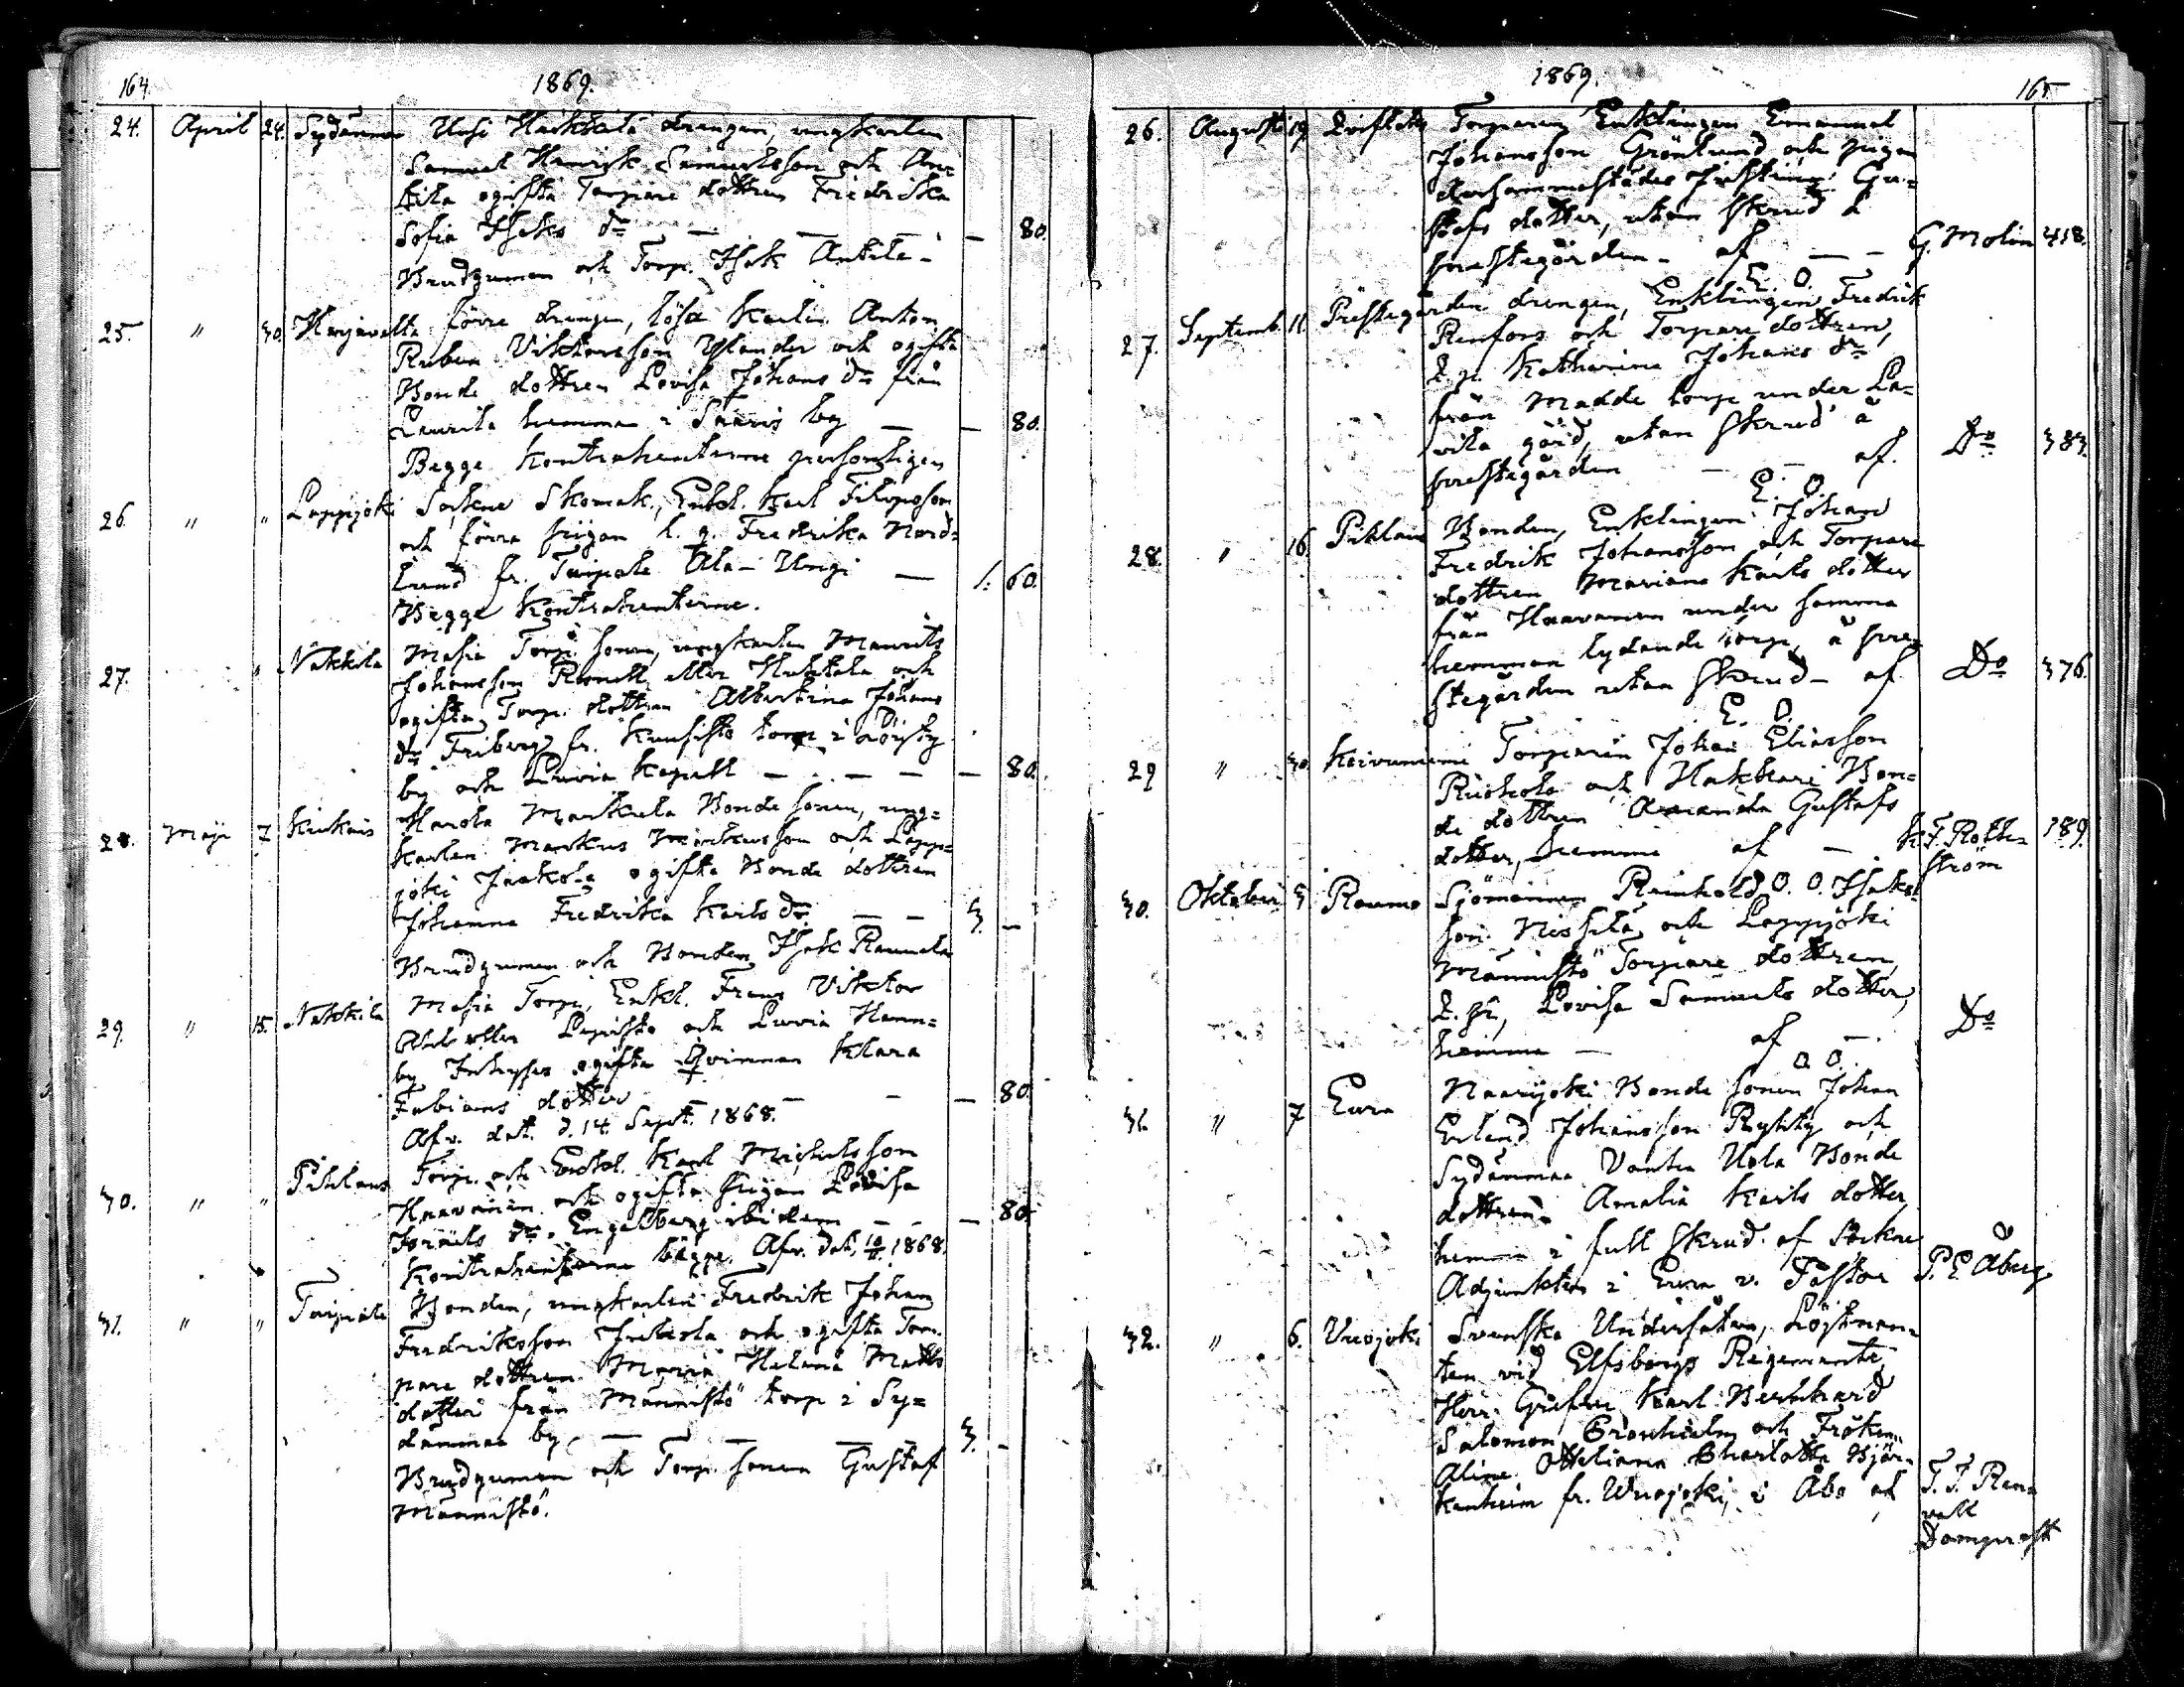 164.
1869.
24. April 24. Sydänmaa Uusi Hakkala drängen, ungkarlen
Samuel Henrik Samuelsson och An-
tila ogifta Torpare dottren Fredrika
Sofia Isaks dr — — — — 80.
Brudgummen och Torp. Isak Anttila
25. " 30. Harjavalta förre drängen, lösa Karlen Anton
Ruben Viktorsson Ylander och ogifta
Bonde dottren Lovisa Johans dr från
Laurila hemman i Saaris by — — 80.
Begge Kontrahenterne personligen
26. " " Lappijoki Sockne Skomak., Enkl. Karl Filipsson
och förra pigan l. q. Fredrika Nord-
lund fr. Taipale Ala-Uvagi — 1. 60.
Begge Kontrahenterne.
27. " Nakkila Masia Torp. sonen, ungkarlen Maurits
Johansson eller Huhtala och
ogifta Torp. dottren Albertina Johans
dr Friberg fr. Kuusisto torp i
by och Luvia Kapell — — — — 80.
28. Maji 7 Kiukais Harola Markula Bonde sonen, ung-
karlen Markus Markusson och Lapp-
joki Jaakola ogifta Bonde dottren
Johanna Fredrika Karls dr. — — 3. —
Brudgummen och Bonden Isak Raumala
29. " 15. Nakkila Masia Torp., Enkl. Frans Viktor
eller Lepistö och Luvia Hann-
by Inhyses ogifta Qvinnan Klara
Fabians dotter — — — — 80.
Afv. dat. d. 14 Sept. 1868.
30. " " Pihlaus Torp. och Enkl. Karl Michelsson
Haavanen och ogifta pigan Lovisa
Israels dr. Engelberg ibidem — — — 80.
Kontrahenterne begge. Afv. dat. 1868.
31. " " Taipale Bonden, ungkarlen Fredrik Johan
Fredriksson och ogifta Tor-
pare dottren Maria Helena Matts
dotter från Männistö torp i Sy-
dänmaa by, — — — 3. -
Brudgummen och Torp. sonen Gustaf
Männistö.
165.
1869.
26. Augusti 19. Torparen Enklingen Emanuel
Johansson Grönlund och pigan
darsammastädes Justina Gu-
stafs dotter, utan skrud å
prestegården - af — — G. Molin 418.
E. O.
27. Septemb. 11 Prestegården drängen, Enklingen Fredrik
Renfors och Torpare dottren,
Q. p. Katharina Johans dr
från Madde torp under La-
vila gård, utan skrud å
prestegården — — af. Do 383.
E. O.
28. " 16. Pihlaus Bonden, Enklingen Johan
Fredrik Johansson och Torpare
dottren Mariana Karls dotter
från Haavanen under samma
hemman lydande torp, å pre-
stegården utan skrud - af Do 376.
E. O.
29 " 30. Koivuniemi Torparen Johan Eliasson
Riiohola och Hakkari Bon-
de dottren Amanda Gustafs
dotter, hemma af — K. F. Roth- 189.
ström
30. Oktober 3 Raumo Sjömannen Reinhold O. O. Isaks-
son Nissilä och Lappijoki
Männistö Torpare dottren,
Q. p., Lovisa Samuels dotter,
hemma — af — Do
O. O.
31. " 7 Eura Naarjoki Bonde sonen Johan
Erland Johansson Ryhty och
Sydänmaa Vanha Uola Bonde
dottren Amalia Karls dotter,
hemma i full skrud af Sockne
Adjunkten i Eura v. Pastor P. E. Åberg
32. " 6. Vuojoki Svenska Undersåten, Löjtnan-
ten vid Elfsborgs Regemente
Herr Grefve Karl Bernhard
Salomon Cronhielm och Fröken
Aline Ottiliana Charlotta Björ-
kenheim fr. Wuojoki, i Åbo af T. T. Ren-
vall
Domprost